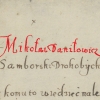 Mikołaj Daniłowicz
Samborski Drohobyck
komu to wiedzieć nale